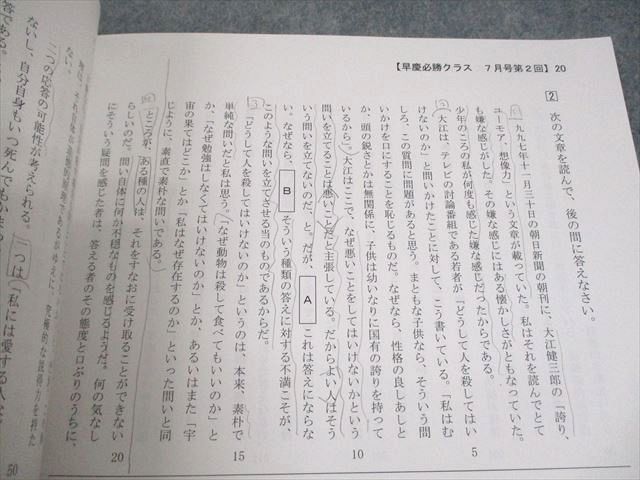 【早慶必勝クラス 7月号第2回】 20
2 次の文章を読んで、後の問に答えなさい。
一九九七年十一月三十日の朝日新聞の朝刊に、大江健三郎の「誇り、
ユーモア、想像力」という文章が載っていた。私はそれを読んでとて
も嫌な感じがした。その嫌な感じにはある懐かしさがともなっていた。
少年のころの私が何度も感じた嫌な感じだったからである。
大江は、テレビの討論番組である若者が「どうして人を殺してはい
けないのか」と問いかけたことに対して、こう書いている。「私はむ
しろ、この質問に問題があると思う。まともな子供なら、そういう問
いかけを口にすることを恥じるものだ。なぜなら、性格の良しあしと
か、頭の鋭さとかは無関係に、子供は幼いなりに固有の誇りを持って
いるから」。大江はここで、なぜ悪いことをしてはいけないかという
問いを立てることは悪いことだと主張している。だからよい人はそう
いう問いを立てないのだ、と。だが、 A これは答えにならな
い。なぜなら、 B そういう種類の答えに対する不満こそが、
このような問いを立てさせる当のものであるからだ。
「どうして人を殺してはいけないのか」というのは、本来、素朴で
単純な問いだと私は思う。「なぜ動物は殺して食べてもいいのか」と
か、「なぜ勉強はしなくてはいけないのか」とか、あるいはまた「宇
宙の果てはどこか」とか「私はなぜ存在するのか」といった問いと同
じように、素直で素朴な問いである。
ところが、ある種の人は、それをすなおに受け取ることができない
らしいのだ。問い自体に何か不穏なものを感じるようだ。何の気なし
にそういう疑問を感じた者は、答える者のその態度と口ぶりのうちに、
5
10
15
20
ない。
三つの応答の可能性が考えられる。一つは「私には愛する人な
ないし、自分自身もいつ死んでもかまわ
答である。
50